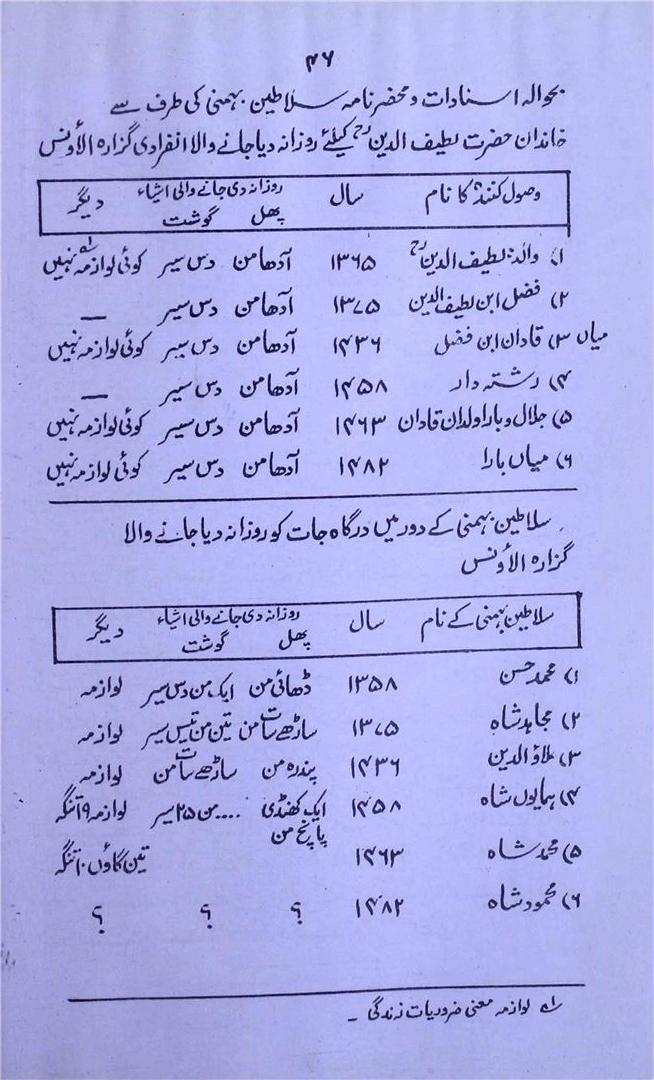 ۴۶
بحوالہ اسنادات و محضر نامہ سلاطین بہمنی کی طرف سے
خاندان حضرت لطیف الدینؒ کیلئے روزانہ دیا جانے والا انفرادی گزارہ الأونس
وصول کنندہ کا نام سال روزانہ دی جانے والی اشیاء دیگر
پھل گوشت
۱) والد: لطیف الدینؒ ۱۳۶۵ آدھا من دس سیر کوئی لوازمہ لہ نہیں
۲) فضل ابن لطیف الدین ۱۳۷۵ آدھا من دس سیر —
میاں ۳) قادان ابن فضل ۱۴۳۶ آدھا من دس سیر کوئی لوازمہ نہیں
۴) رشتہ دار ۱۴۵۸ آدھا من دس سیر —
۵) جلال و بارا ولدان قادان ۱۴۶۳ آدھا من دس سیر کوئی لوازمہ نہیں
۶) میاں بارا ۱۴۸۲ آدھا من دس سیر کوئی لوازمہ نہیں
سلاطین بہمنی کے دور میں درگاہ جات کو روزانہ دیا جانے والا
گزارہ الأونس
سلاطین بہمنی کے نام سال روزانہ دی جانے والی اشیاء دیگر
پھل گوشت
۱) محمد حسن ۱۳۵۸ ڈھائی من ایک من دس سیر لوازمہ
۲) مجاہد شاہ ۱۳۷۵ ساڑھے سات من تین من تیس سیر لوازمہ
۳) علاؤ الدین ۱۴۳۶ پندرہ من ساڑھے سات من لوازمہ
۴) ہمایوں شاہ ۱۴۵۸ ایک کھنڈی .... من ۲۵ سیر لوازمہ ۹ تنگہ
پانچ من
۵) محمد شاہ ۱۴۶۳ تین گاؤں ۱۰ تنگہ
۶) محمود شاہ ۱۴۸۲ ؟ ؟ ؟
لہ لوازمہ معنی ضروریات زندگی ۔